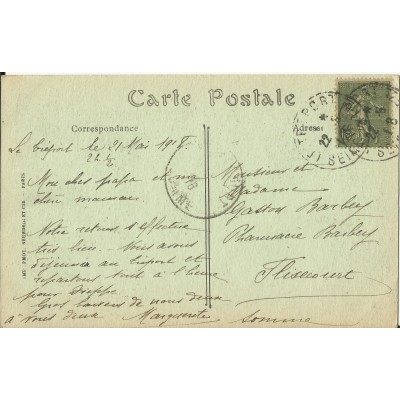 Carte Postale
Correspondance
Adresse
Le Tréport le 21 Mai 1918
Mon cher papa et ma
chère maman
Notre retour s'effectue
très bien. Nous avons
déjeuner au Tréport et
repartons tout à l'heure
pour Dieppe
Gros baisers de nous deux
à vous deux Marguerite
Monsieur et
Madame
Gaston Barbey
Pharmacie Barbey
Flixecourt
Somme